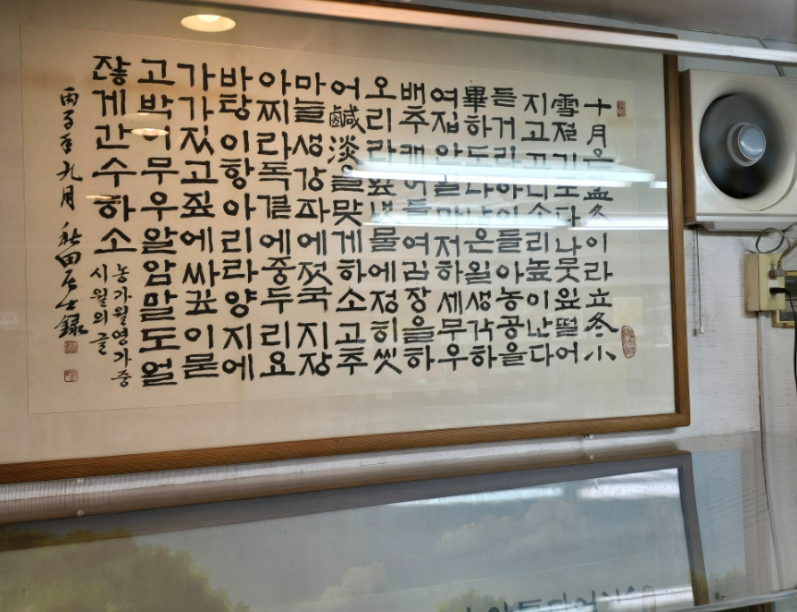 十月은孟冬이라立冬小
雪절기로다나뭇잎떨어
지고고니소리높이난다
듣거라아이들아농공을
畢하도다남은일생각하
여집안일마저하세무우
배추캐어들여김장을하
오리라앞냇물에정히씻
어鹹淡을맞게하소고추
마늘생강파에젓국지장
아찌라독곁에중두리요
바탕이항아리라양지에
가가짓고짚에싸깊이묻
고박이무우알암말도얼
잖게간수하소
농가월영가중
시월의글
丙子年九月 秋田居士錄